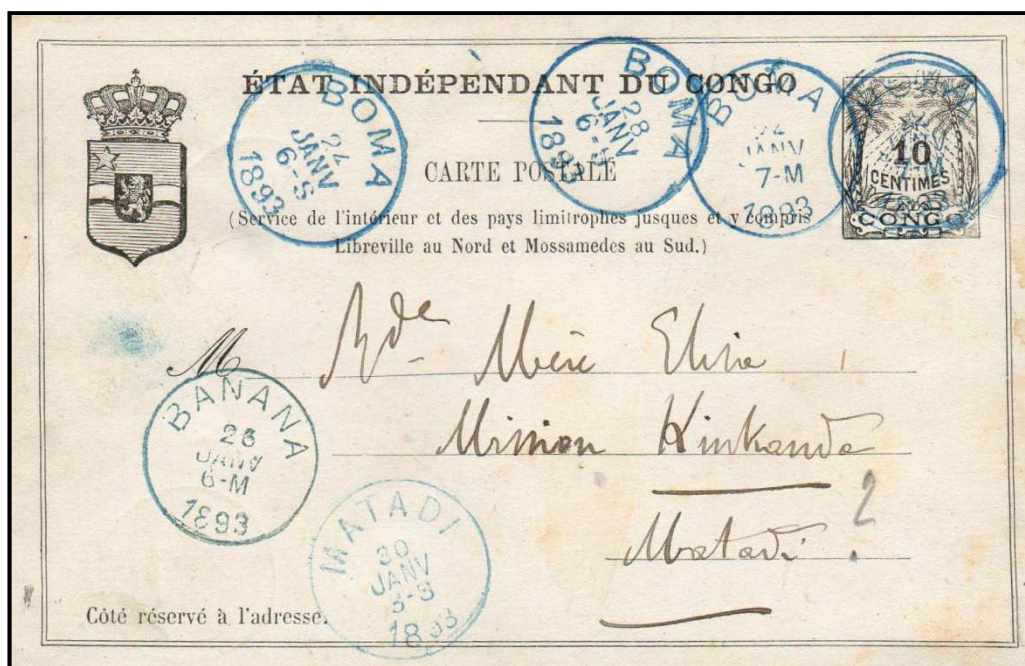 ÉTAT INDÉPENDANT DU CONGO
CARTE POSTALE
(Service de l'intérieur et des pays limitrophes jusques et y compris
Libreville au Nord et Mossamedes au Sud.)
10
CENTIMES
CONGO
BOMA
24
JANV
6-S
1893
BOMA
28
JANV
1893
BOMA
24
JANV
7-M
1893
M
Rde Mère Elise
Mission Kinkanda
Matadi
?
BANANA
26
JANV
6-M
1893
MATADI
30
JANV
1893
Côté réservé à l'adresse.